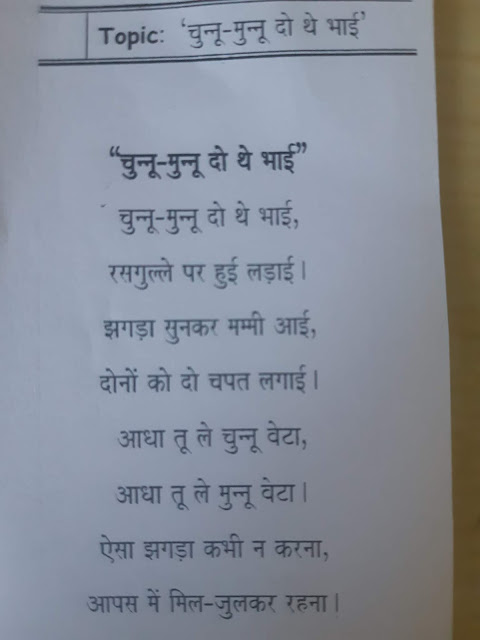 Topic: 'चुन्नू-मुन्नू दो थे भाई'
“चुन्नू-मुन्नू दो थे भाई”
चुन्नू-मुन्नू दो थे भाई,
रसगुल्ले पर हुई लड़ाई।
झगड़ा सुनकर मम्मी आई,
दोनों को दो चपत लगाई।
आधा तू ले चुन्नू वेटा,
आधा तू ले मुन्नू वेटा।
ऐसा झगड़ा कभी न करना,
आपस में मिल-जुलकर रहना।